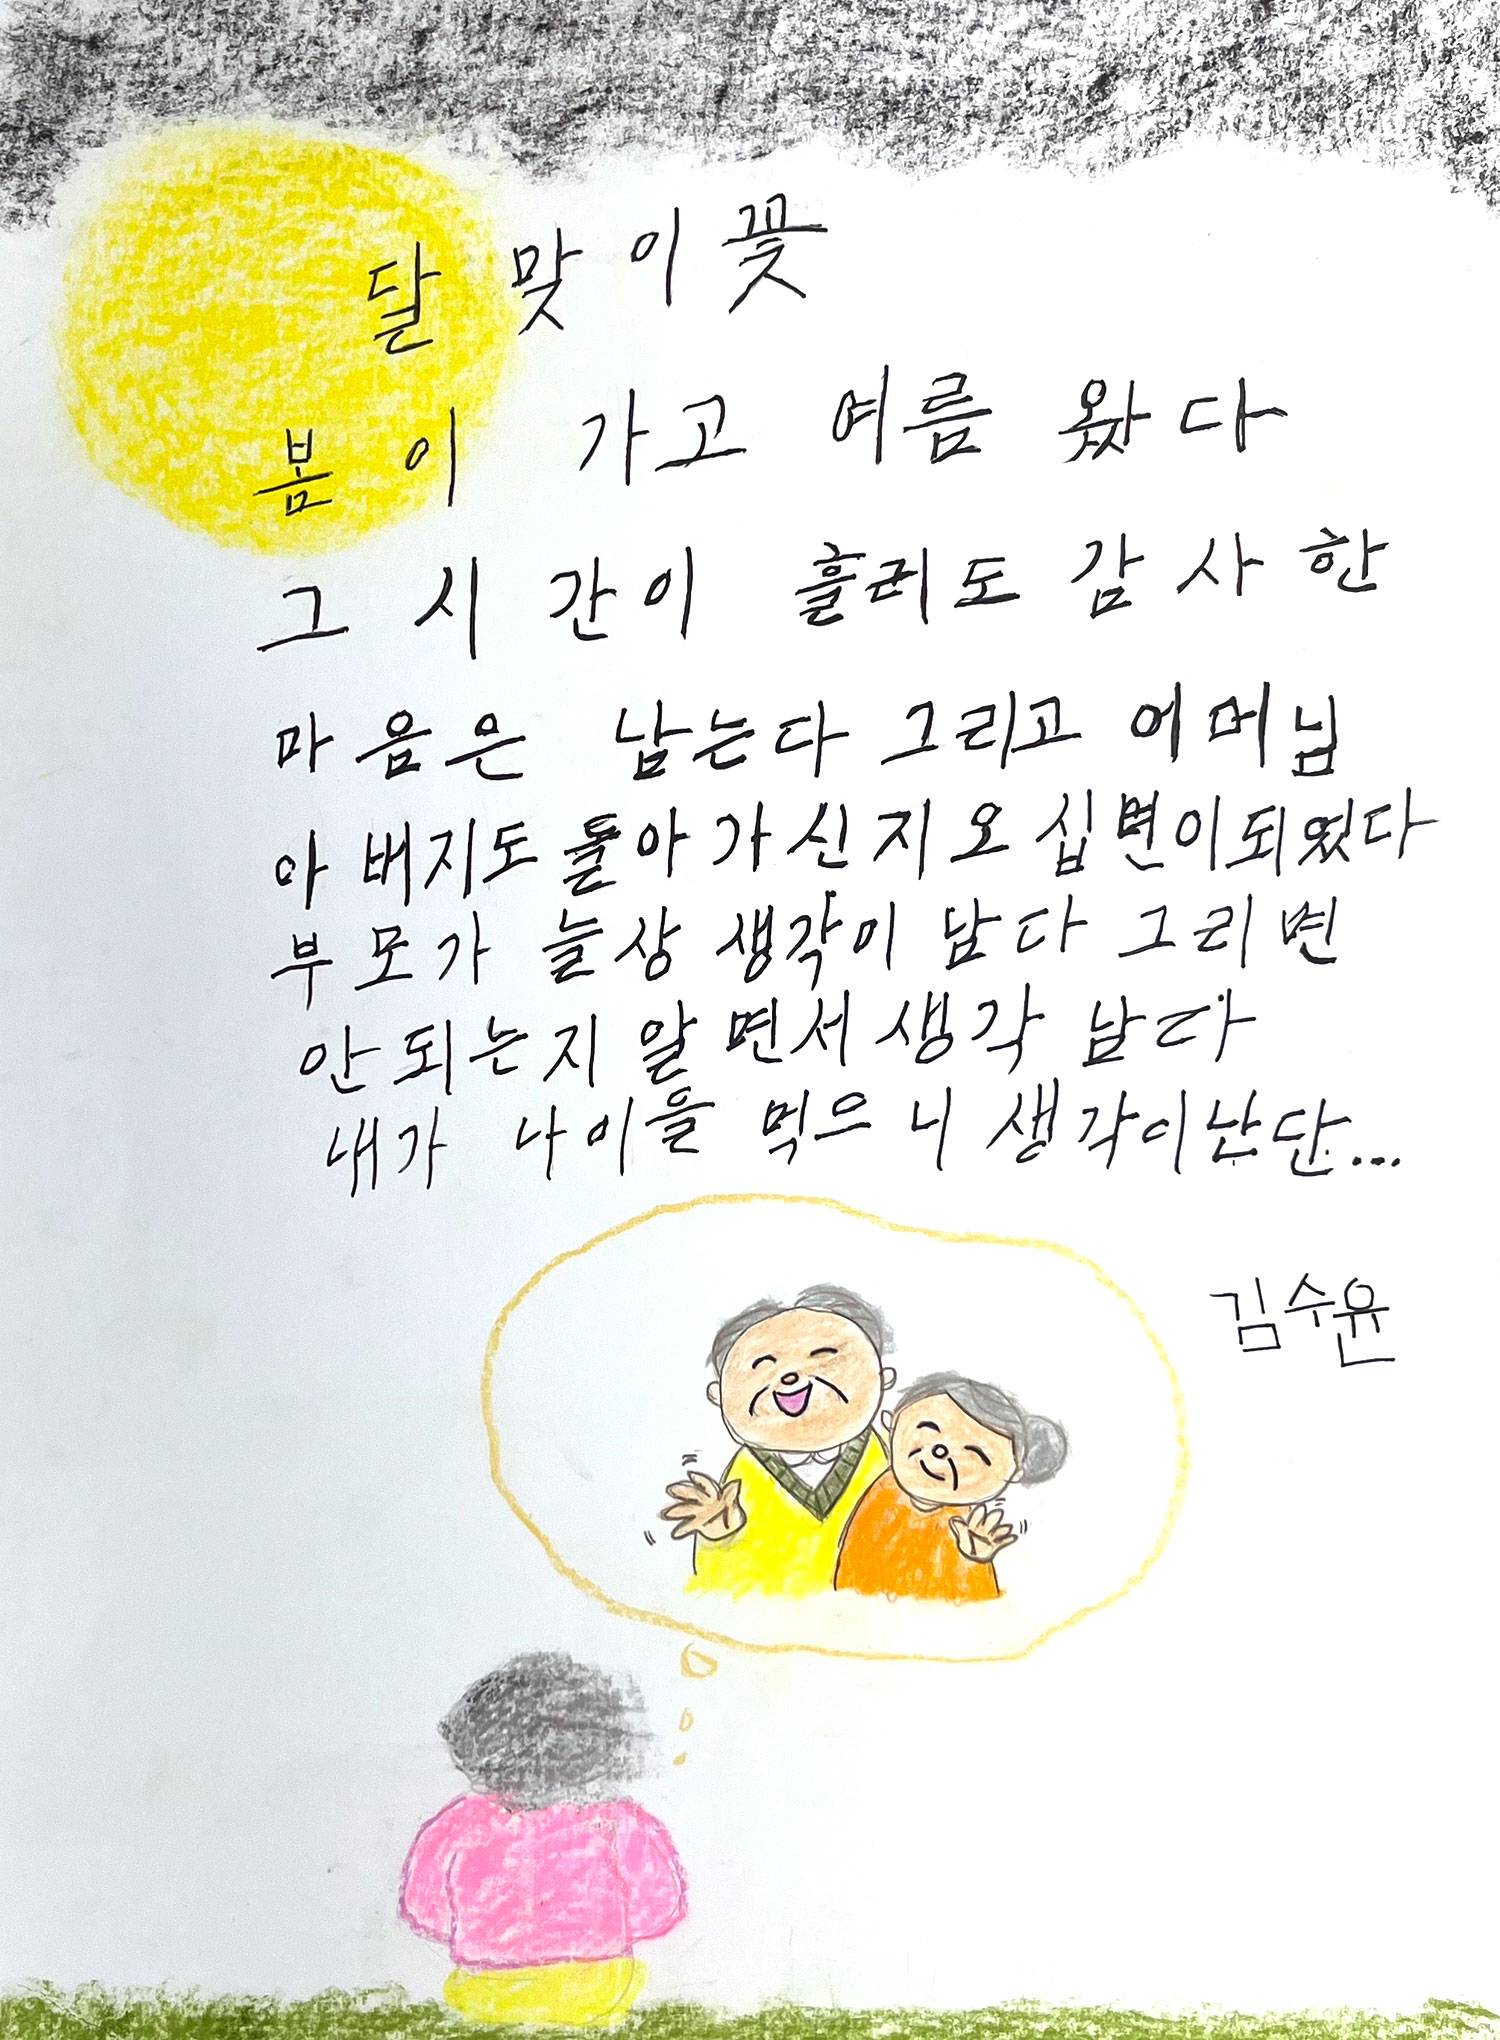 달맞이꽃
봄이 가고 여름 왔다
그 시간이 흘러도 감사한
마음은 남는다 그리고 어머님
아버지도 돌아가신지 오십면이되었다
부모가 늘상 생각이 남다 그리면
안되는지 알면서 생각 남다
내가 나이을 먹으니 생각이난단...
김수윤